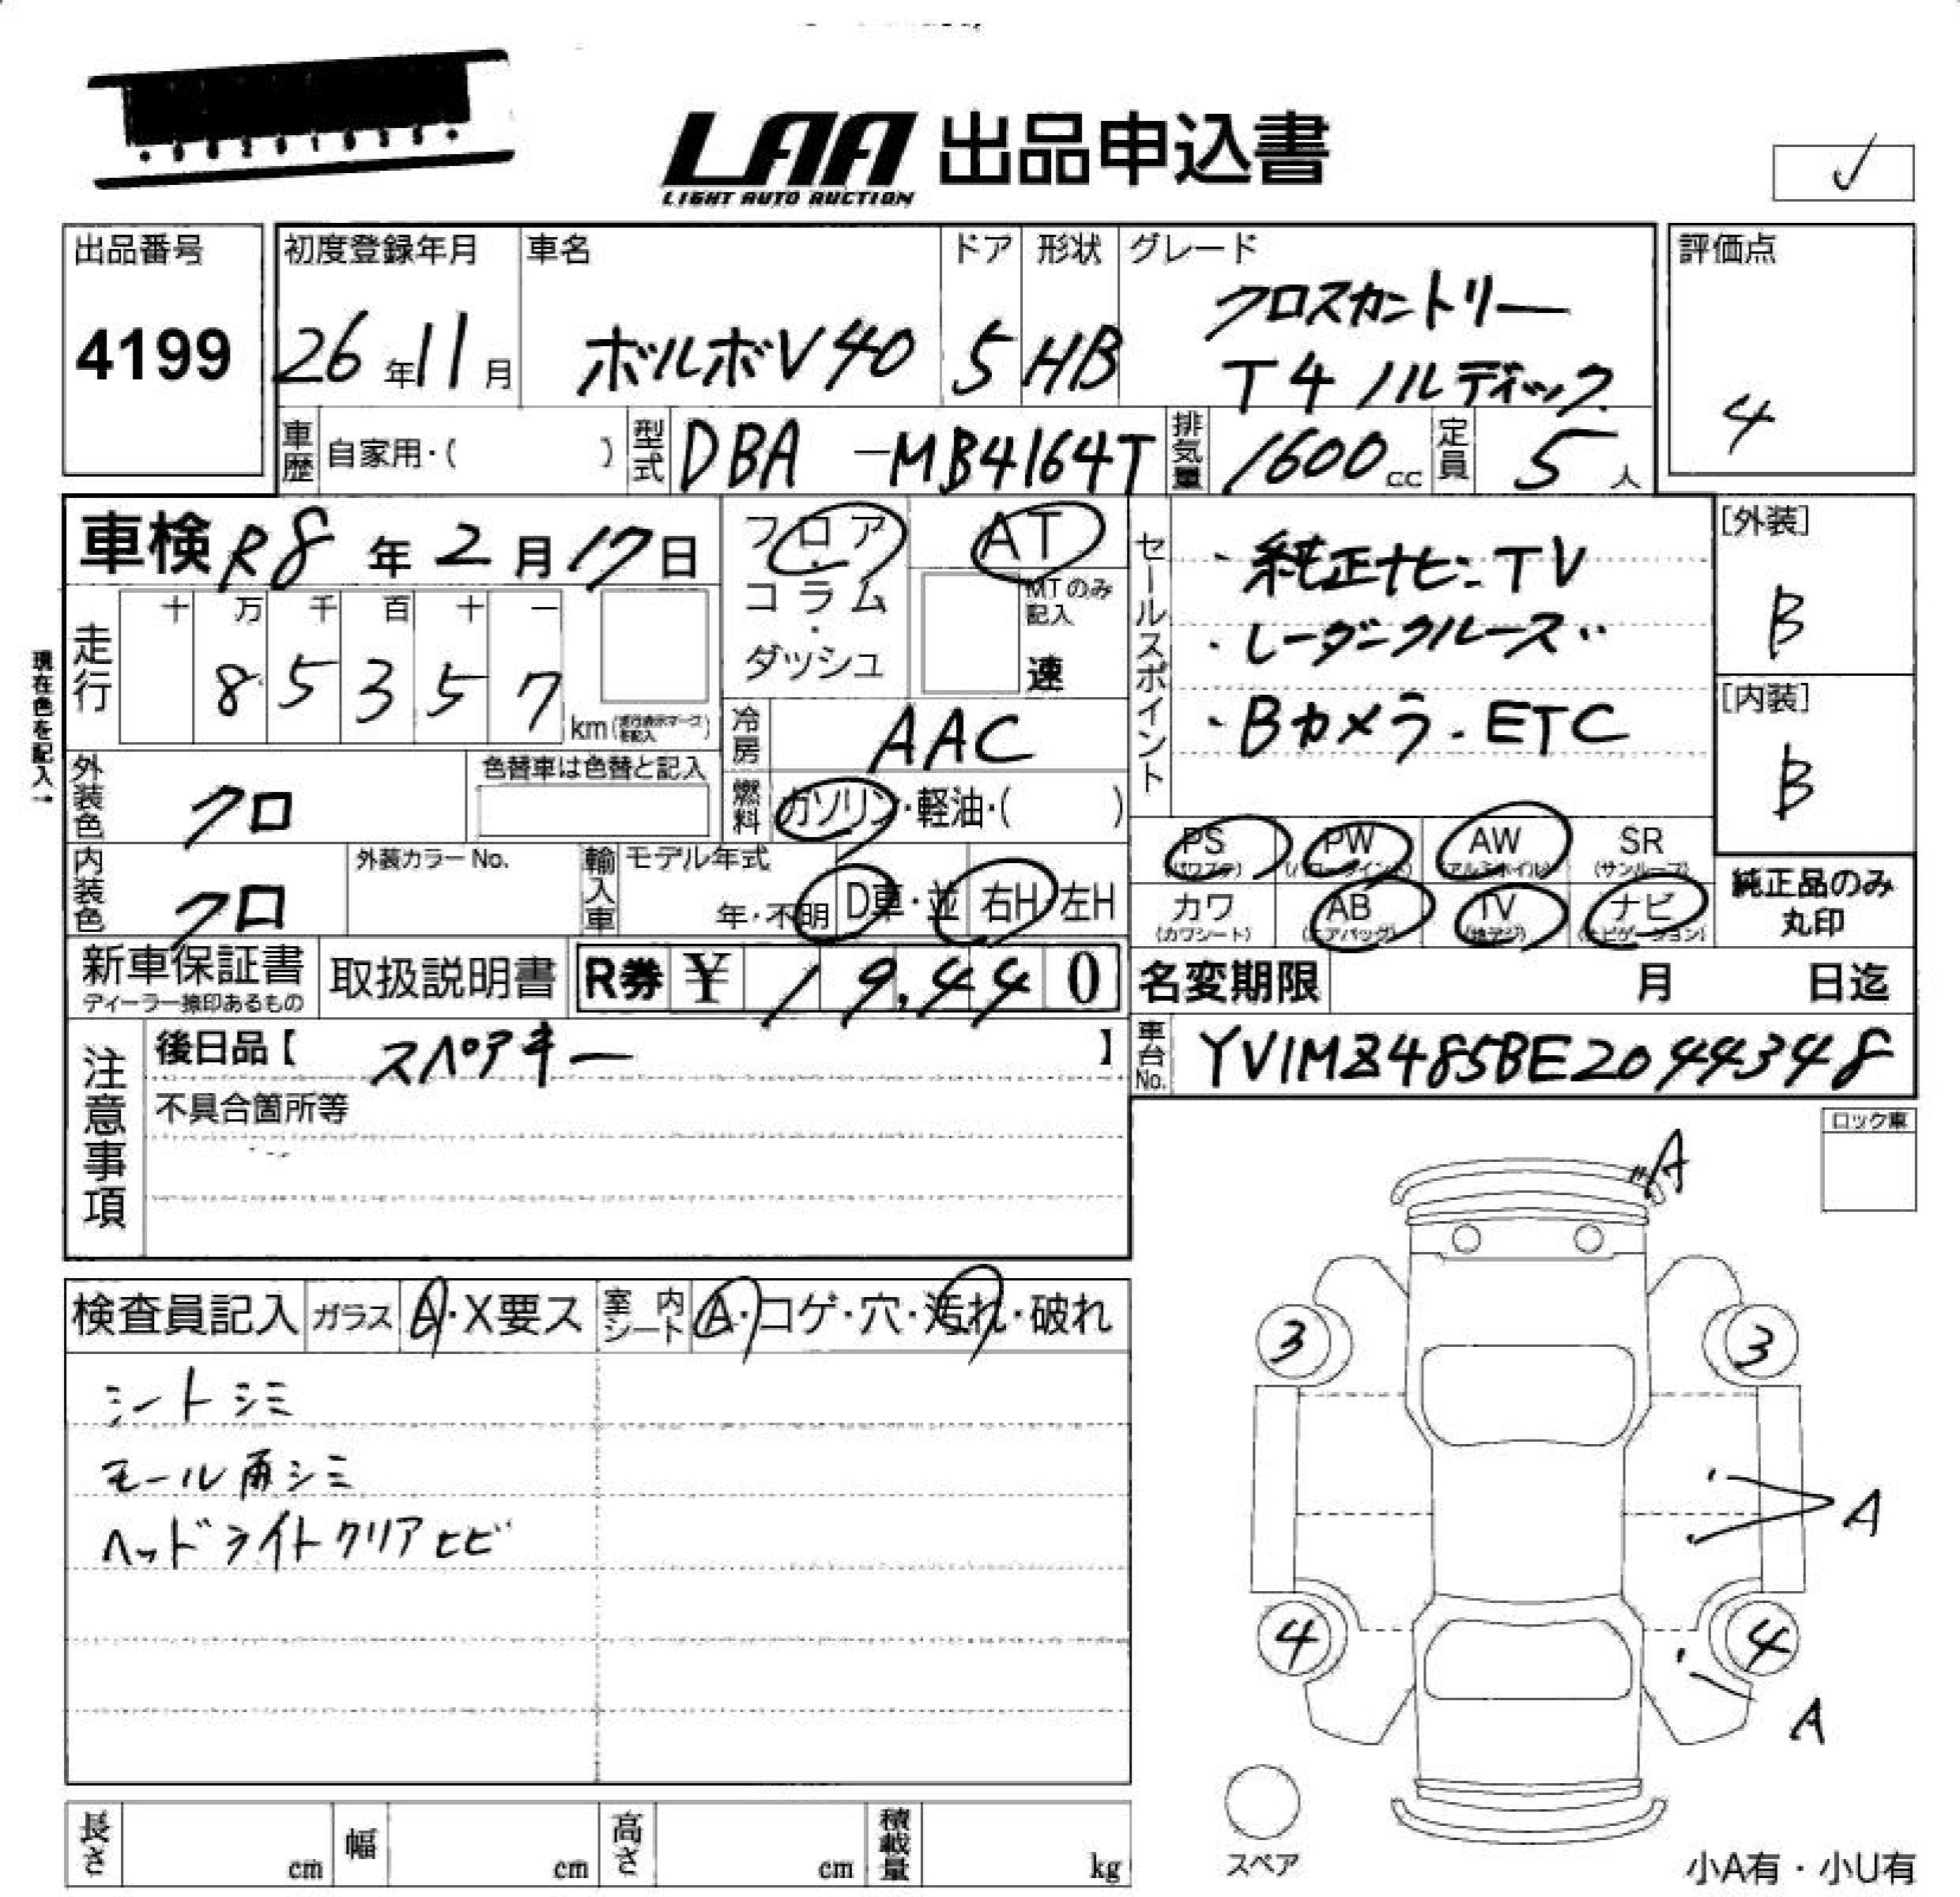 LAA 出品申込書
LIGHT AUTO AUCTION
✓
出品番号
4199
初度登録年月
26年11月
車名
ボルボV40
ドア
5
形状
HB
グレード
クロスカントリー
T4 ノルディック
評価点
4
車歴 自家用・( )
型式 DBA-MB4164T
排気量 1600cc
定員 5人
車検 R8年2月17日
フロア・
コラム・
ダッシュ
AT
MTのみ
記入
速
セールスポイント
・純正ナビ・TV
・レーダークルーズ
・Bカメラ・ETC
[外装]
B
[内装]
B
現在色を記入→
走行
十 万 千 百 十 一
8 5 3 5 7 km
冷房 AAC
燃料 ガソリン・軽油・( )
外装色 クロ
色替車は色替と記入
内装色 クロ
外装カラーNo.
輸入車
モデル年式
年・不明
D車・並
右H 左H
PS
(パワステ)
PW
(パワーウインド)
AW
(アルミホイル)
SR
(サンルーフ)
カワ
(カワシート)
AB
(エアバッグ)
TV
(地デジ)
ナビ
(ナビゲーション)
純正品のみ
丸印
新車保証書
ディーラー捺印あるもの
取扱説明書
R券 ¥ 19,440
名変期限 月 日迄
車台No. YV1MZ485BE2044348
注意事項
後日品【 スペアキー 】
不具合箇所等
ロック車
検査員記入
ガラス A・X要ス
室内シート A・コゲ・穴・汚れ・破れ
シートシミ
モール雨シミ
ヘッドライトクリアヒビ
A
3 3
A
4 4
A
スペア
長さ cm
幅 cm
高さ cm
積載量 kg
小A有・小U有